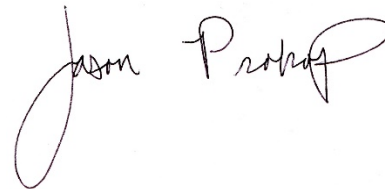 Jason Prokop